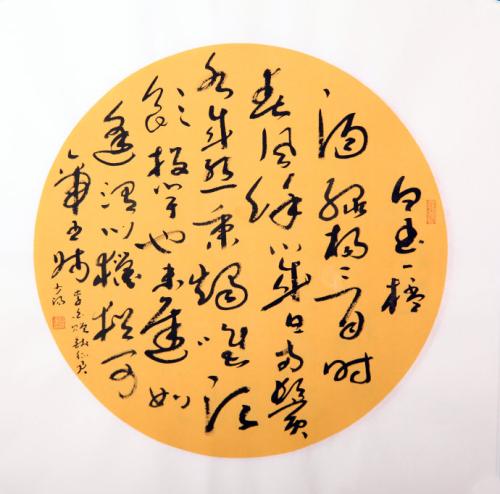 白玉一杯
酒綠楊三月時
春風餘幾日兩鬢
各成絲秉燭唯須
飲投竿也未遲如
逢渭川獵猶可
帝王師